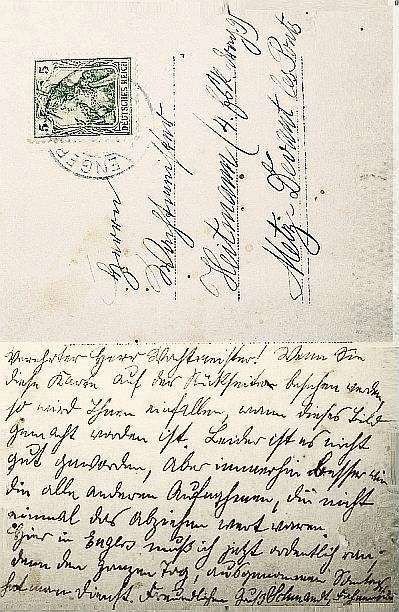 5
DEUTSCHES REICH
5
ENGER
Herrn
Wachtmeister
Heitmann
Metz Devant les Ponts
Verehrter Herr Wachtmeister! Wenn Sie
diese Karte auf der Rückseite besehen werden,
so wird Ihnen einfallen, wann dieses Bild
gemacht worden ist. Leider ist es nicht
gut geworden, aber immerhin besser wie
die alle anderen Aufnahmen, die nicht
einmal das Abziehen wert waren.
Hier in Enger muß ich jetzt ordentlich ran,
denn den ganzen Tag, ausgenommen
hat man Dienst. Freundlichen Gruß